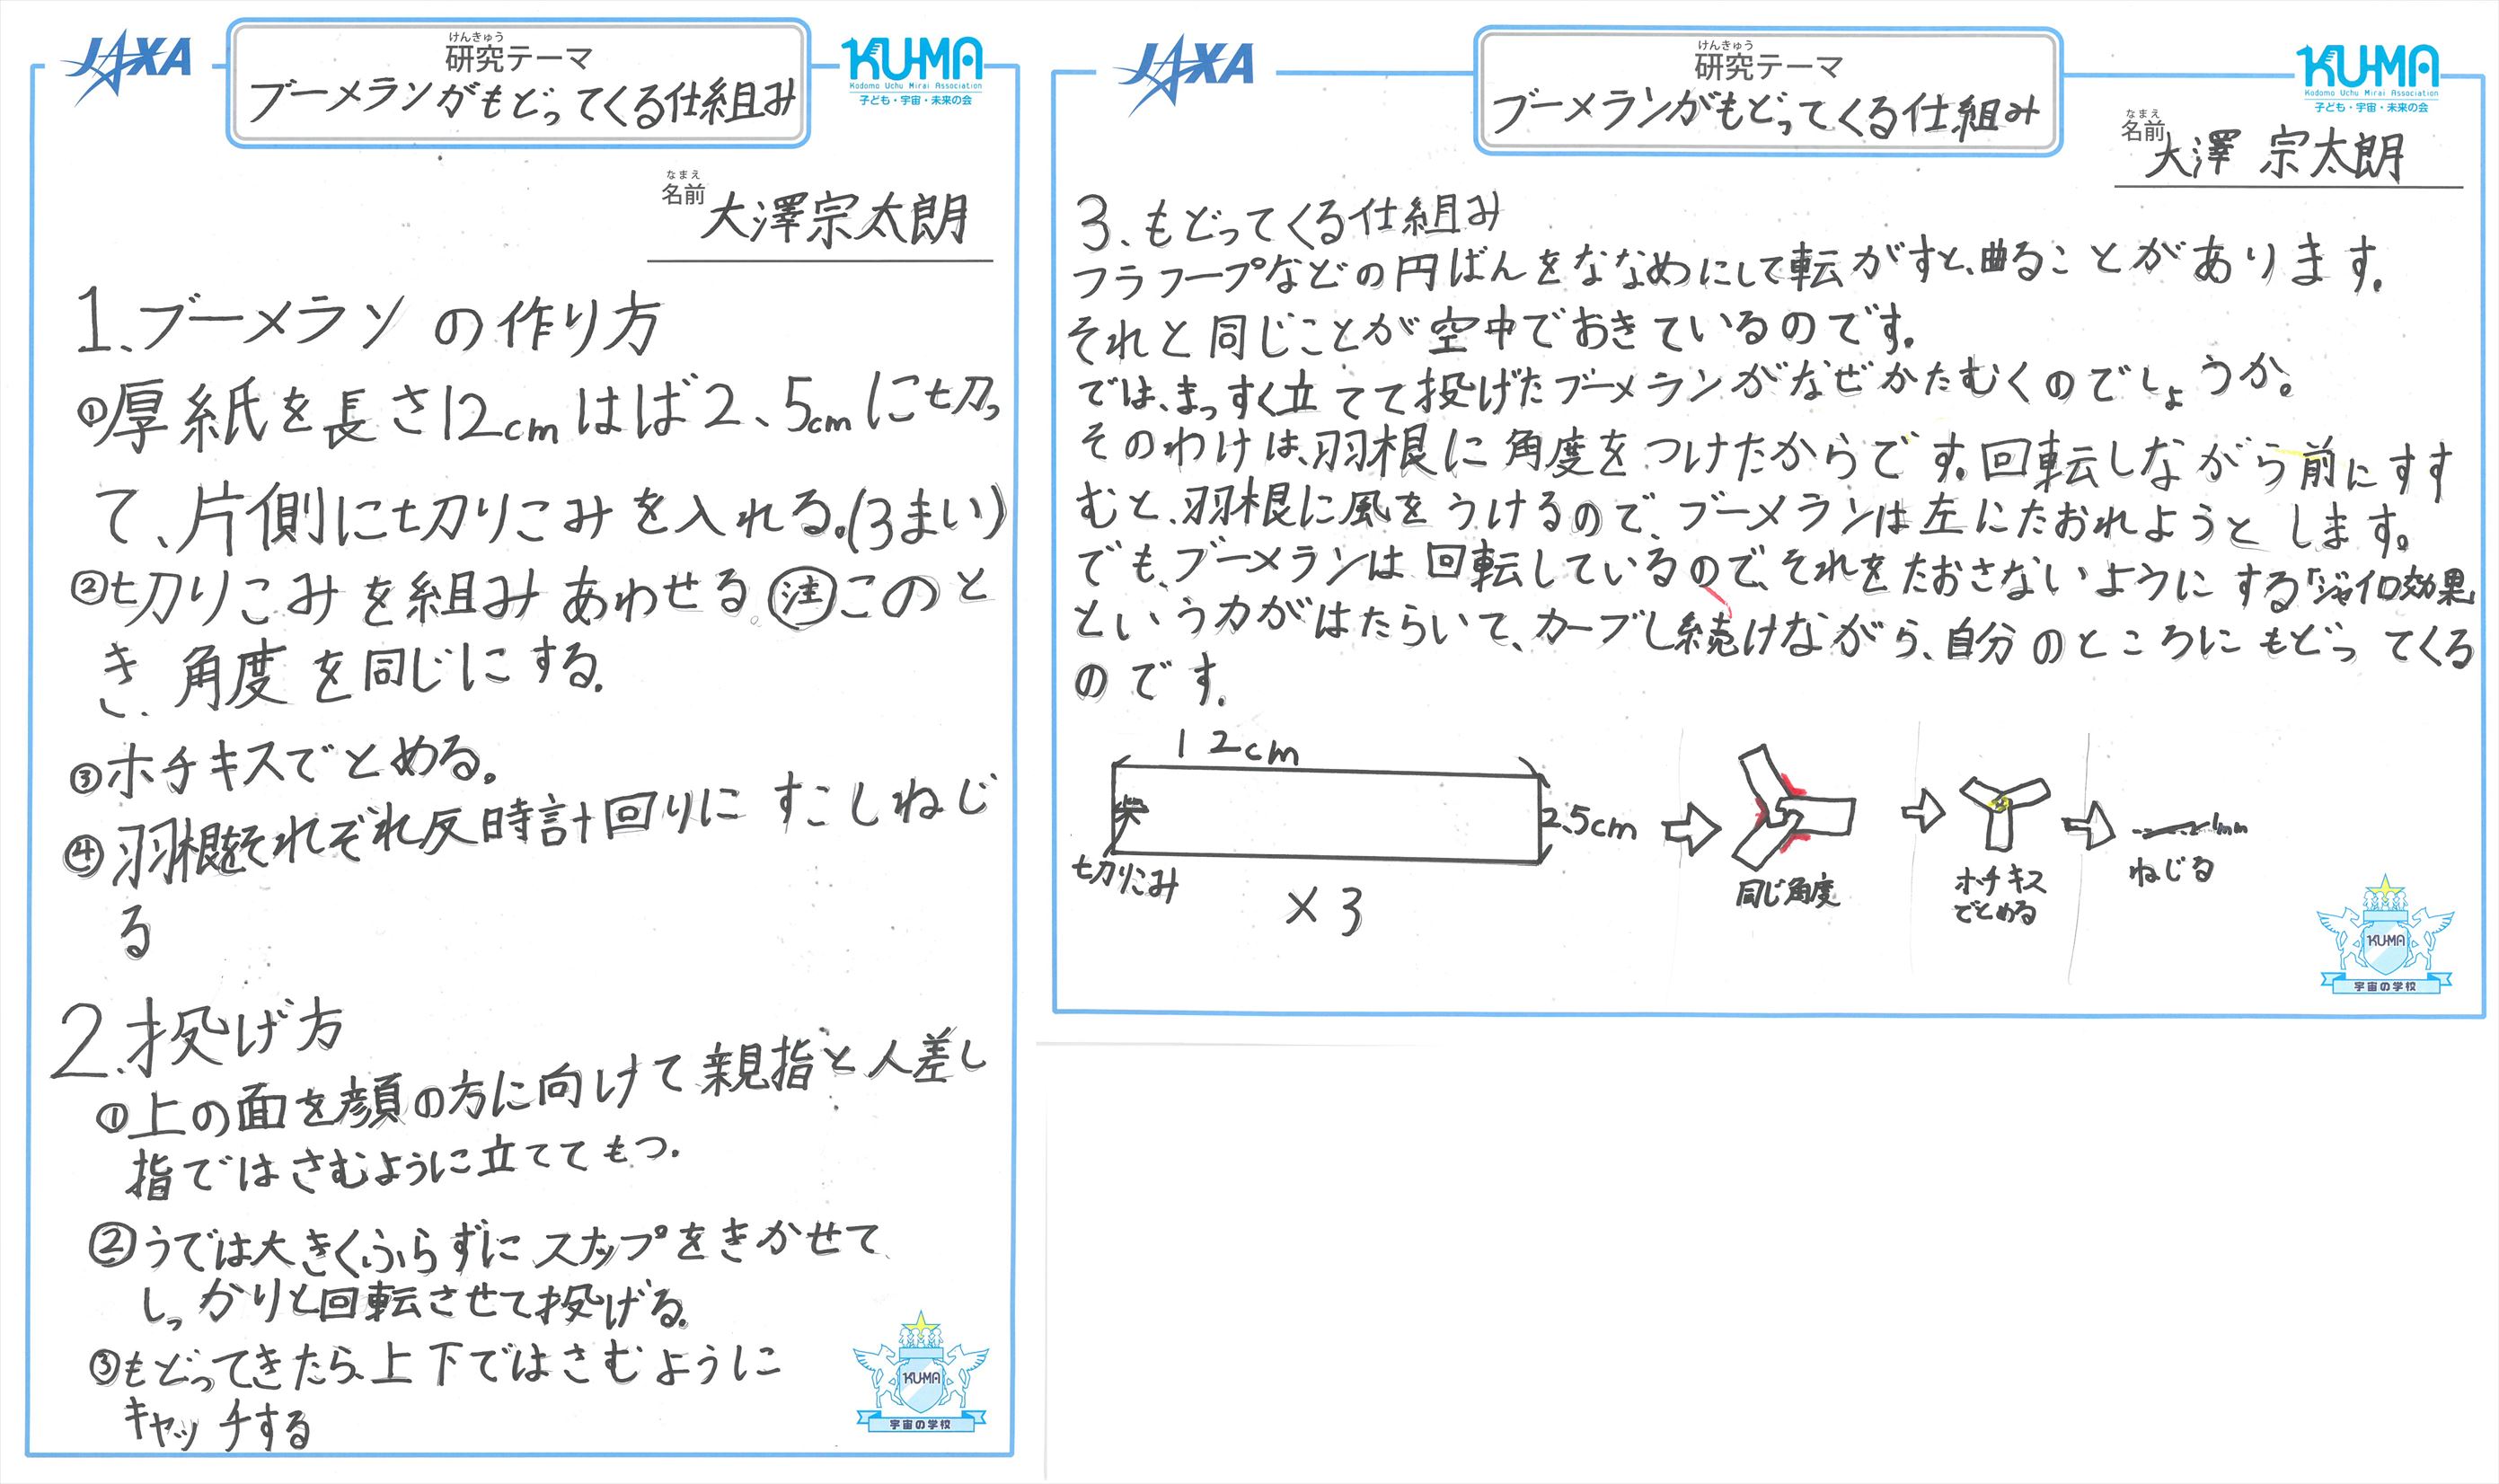 JAXA
けんきゅう
研究テーマ
ブーメランがもどってくる仕組み
KU-MA
Kodomo Uchu Mirai Association
子ども・宇宙・未来の会
なまえ
名前 大澤宗太朗
1、ブーメランの作り方
①厚紙を長さ12cmはば2、5cmに切っ
て、片側に切りこみを入れる。(3まい)
②切りこみを組みあわせる。注このと
き、角度を同じにする。
③ホチキスでとめる。
④羽根をそれぞれ反時計回りにすこしねじ
る
2、投げ方
①上の面を顔の方に向けて親指と人差し
指ではさむように立ててもつ。
②うでは大きくふらずにスナップをきかせて
しっかりと回転させて投げる。
③もどってきたら上下ではさむように
キャッチする
KU-MA
宇宙の学校
JAXA
けんきゅう
研究テーマ
ブーメランがもどってくる仕組み
KU-MA
Kodomo Uchu Mirai Association
子ども・宇宙・未来の会
なまえ
名前 大澤 宗太朗
3、もどってくる仕組み
フラフープなどの円ばんをななめにして転がすと、曲ることがあります。
それと同じことが空中でおきているのです。
では、まっすぐ立てて投げたブーメランがなぜかたむくのでしょうか。
そのわけは、羽根に角度をつけたからです。回転しながら前にすす
むと、羽根に風をうけるので、ブーメランは左にたおれようとします。
でも、ブーメランは回転しているので、それをたおさないようにする「ジャイロ効果」
という力がはたらいて、カーブし続けながら、自分のところにもどってくる
のです。
12cm
2.5cm
切りこみ
×3
同じ角度
ホチキス
でとめる
1mm
ねじる
KU-MA
宇宙の学校